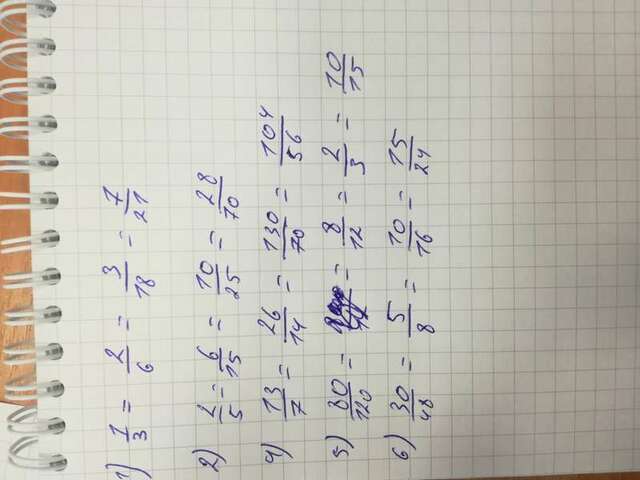 1) 1/3 = 2/6 = 3/18 = 7/21
2) 2/5 = 6/15 = 10/25 = 28/70
4) 13/7 = 26/14 = 130/70 = 104/56
5) 80/120 = = 8/12 = 2/3 = 10/15
6) 30/48 = 5/8 = 10/16 = 15/24